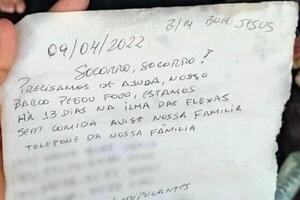 B/M BOM JESUS
09/04/2022
SOCORRO, SOCORRO!
PRECISAMOS DE AJUDA, NOSSO
BARCO PEGOU FOGO, ESTAMOS
HÁ 13 DIAS NA ILHA DAS FLEXAS
SEM COMIDA AVISE NOSSA FAMILIA
TELEFONE DA NOSSA FAMILIA
TRIPULANTES